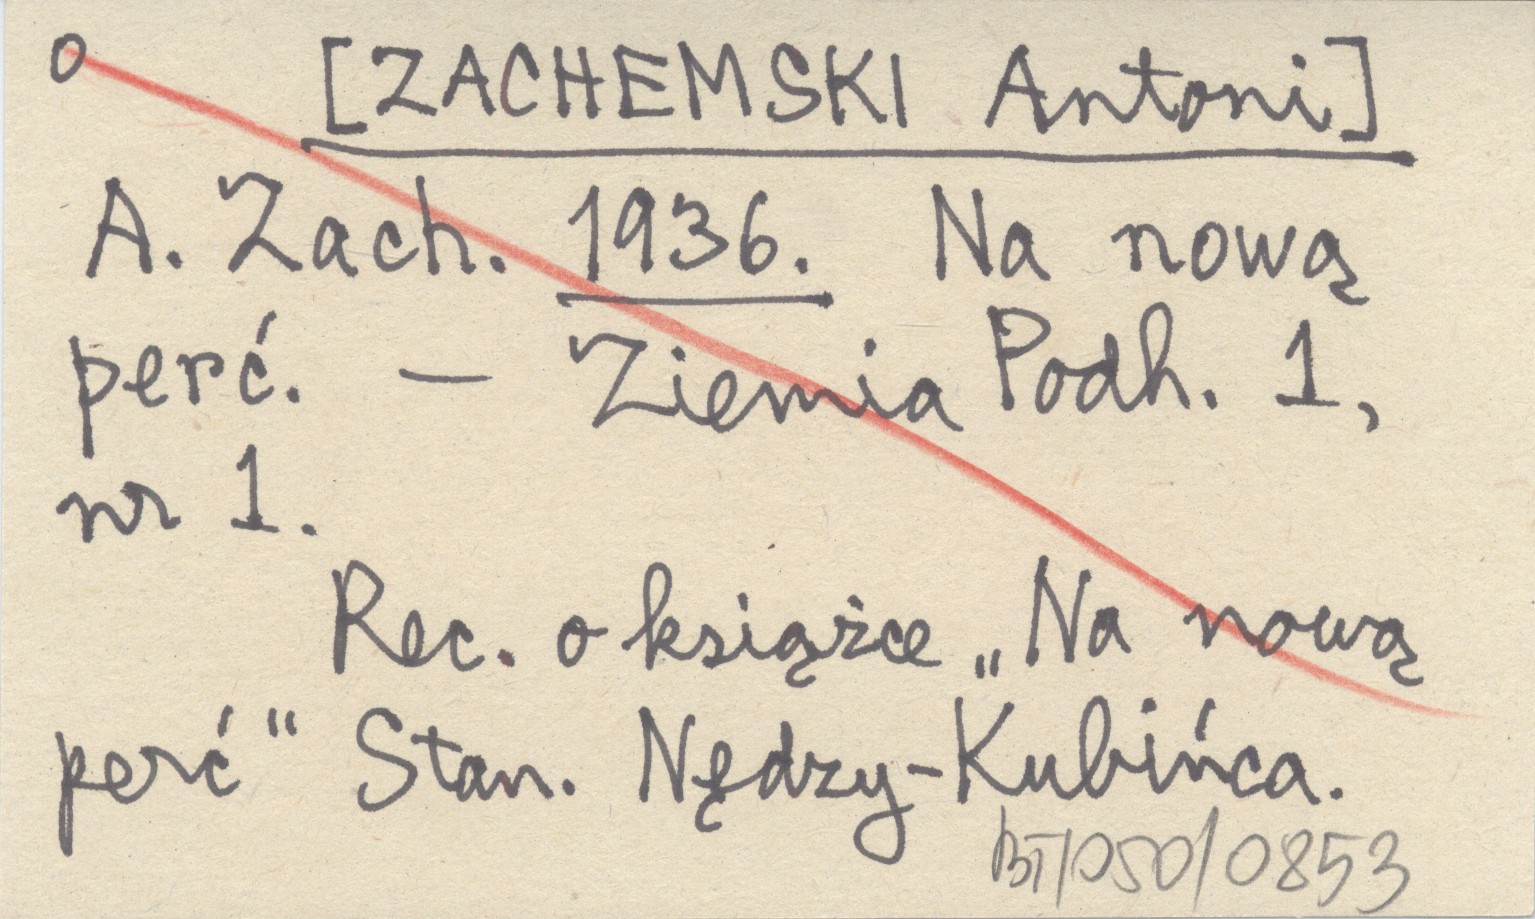 o [ZACHEMSKI Antoni]
A. Zach. 1936. Na nową
perć. — Ziemia Podh. 1,
nr 1.
Rec. o książce „Na nową
perć" Stan. Nędzy-Kubińca.
BT/050/0853